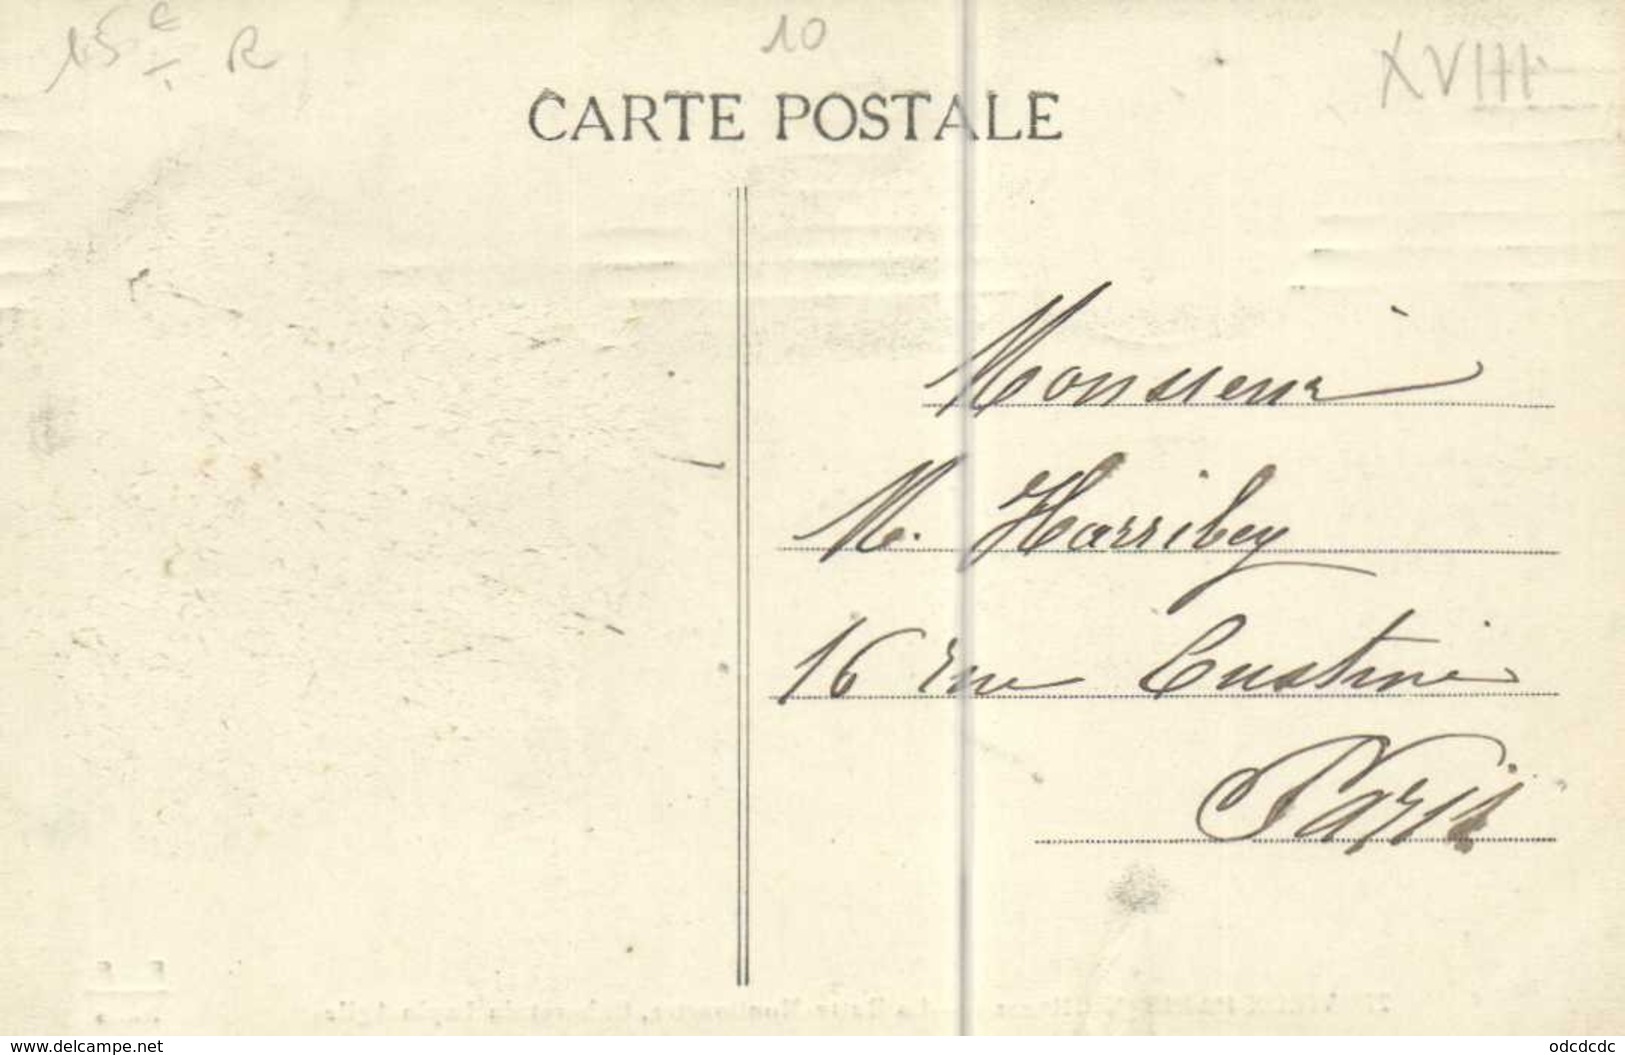 15e R
10
XVIII
CARTE POSTALE
Monsieur
M. Harribey
16 rue Custine
Paris
www.delcampe.net
odcdcdc